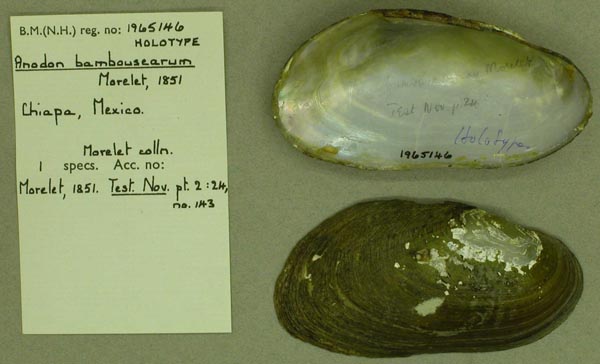 B.M.(N.H.) reg. no: 1965146
HOLOTYPE
Anodon bambousearum
Morelet, 1851
Chiapa, Mexico.
Morelet colln.
1 specs. Acc. no:
Morelet, 1851. Test. Nov. pt. 2:24,
no. 143
Morelet
Test Nov. p. 24
Holotype
1965146